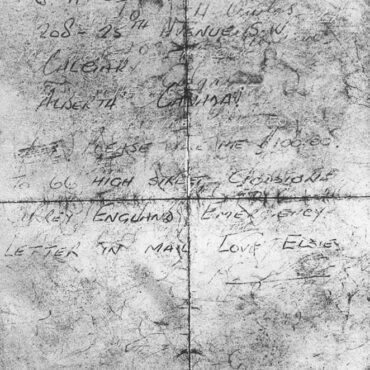 208 - 25TH AVENUE S.W.
CALGARY
ALBERTA CANADA
PLEASE ME $100.00.
TO 66 HIGH STREET
ENGLAND EMERGENCY
LETTER IN MAIL LOVE ELSIE